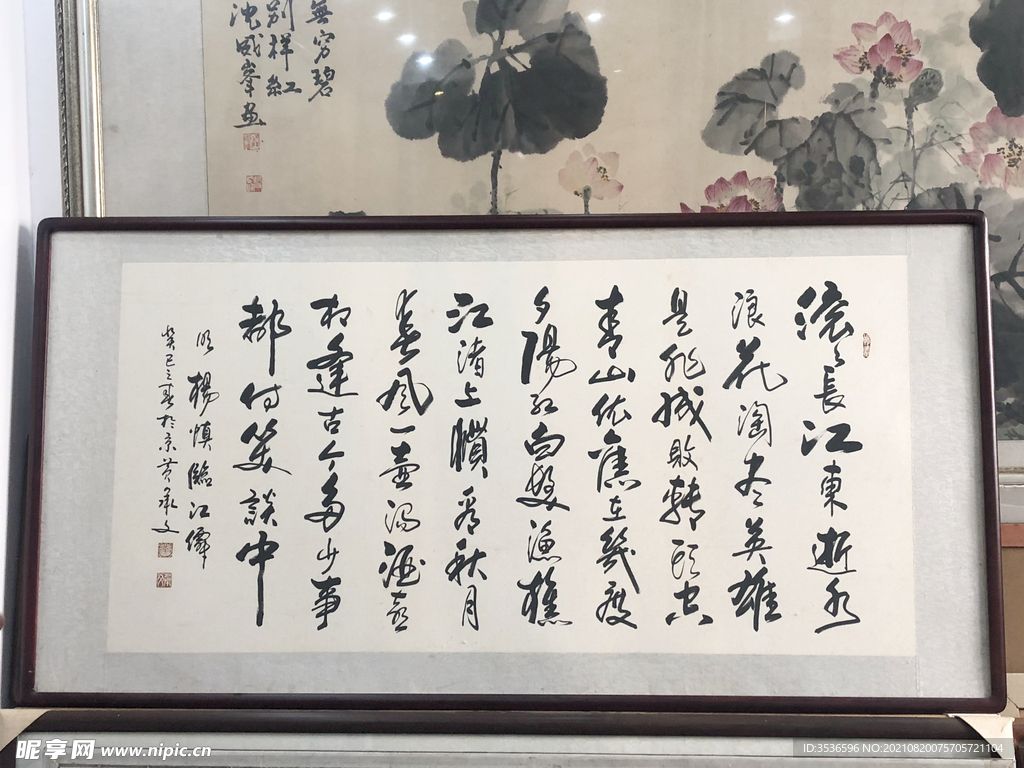 無穷碧
别样红
沈威峯画
滚々長江東逝水
浪花淘尽英雄
是非成敗轉头空
青山依舊在幾度
夕陽红白髮渔樵
江渚上慣看秋月
春风一壶濁酒喜
相逢古今多少事
都付笑談中
明楊慎臨江僊
癸巳之春於京黄承文
昵享网 www.nipic.cn
ID:3536596 NO:20210820075705721104